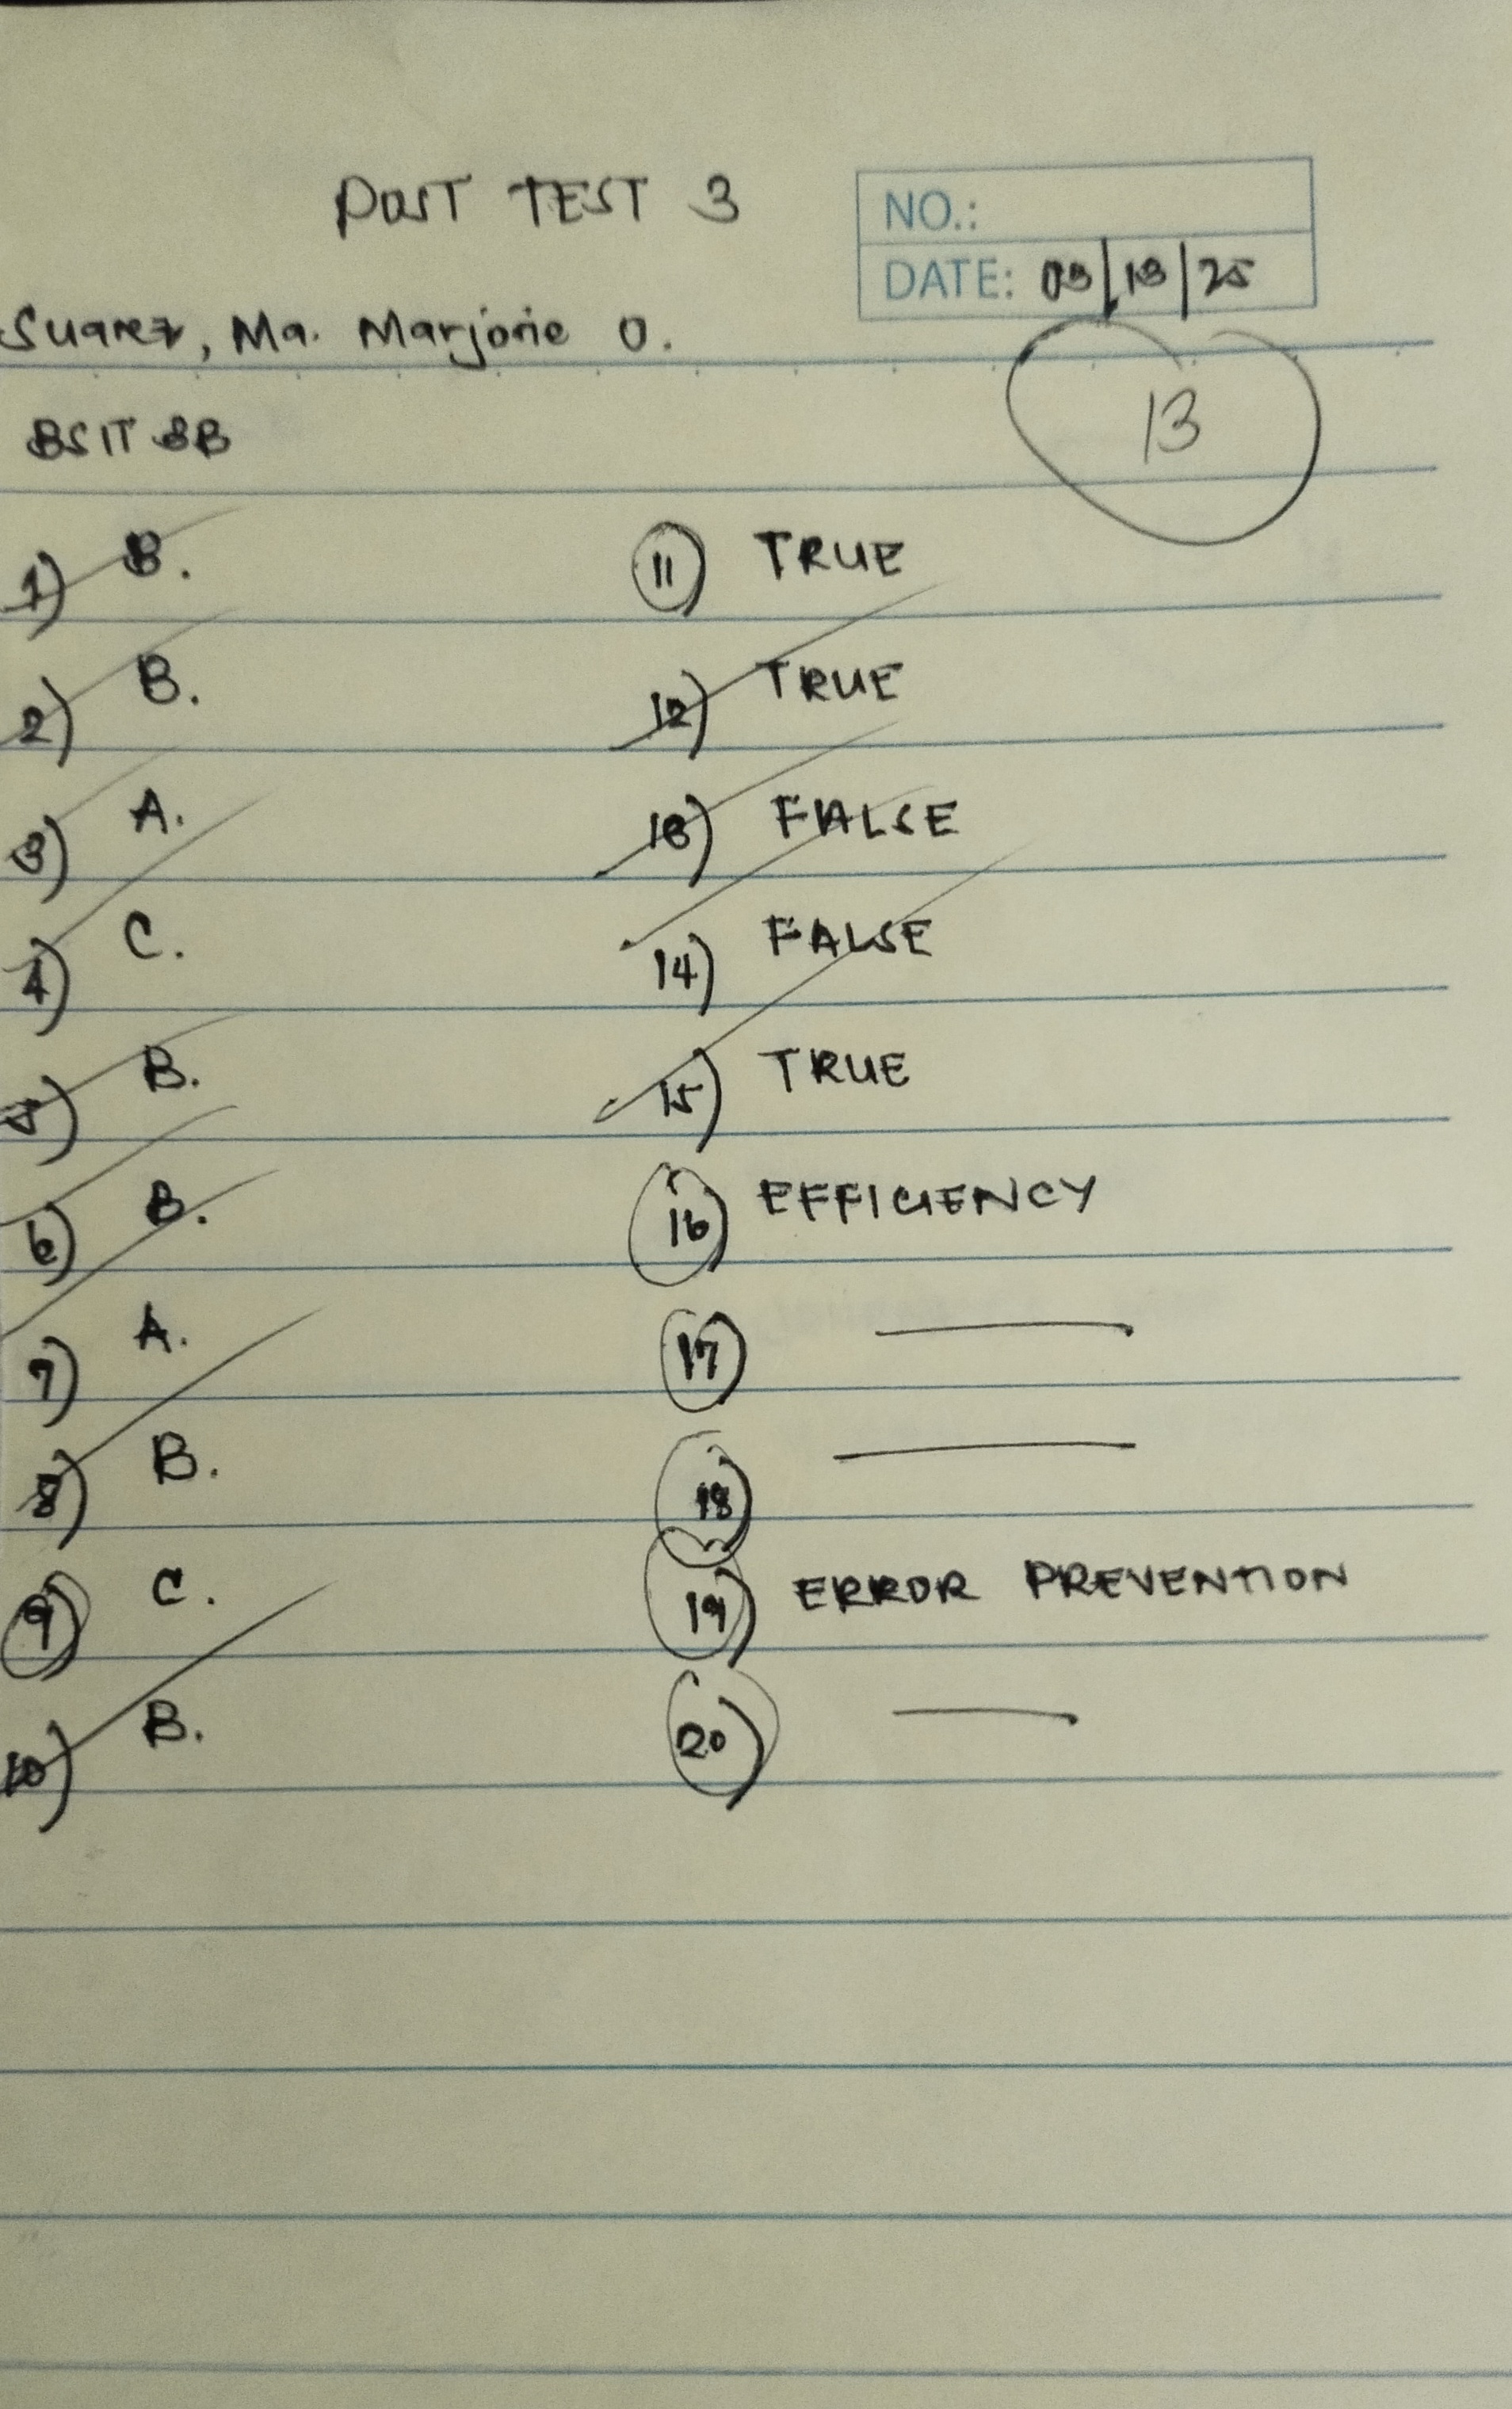 POST TEST 3
NO.:
DATE: 03|13|25
Suarez, Ma. Marjorie O.
13
BSIT 3B
1) B.
2) B.
3) A.
4) C.
5) B.
6) B.
7) A.
8) B.
9) C.
10) B.
11) TRUE
12) TRUE
13) FALSE
14) FALSE
15) TRUE
16) EFFICIENCY
17)
18)
19) ERROR PREVENTION
20)